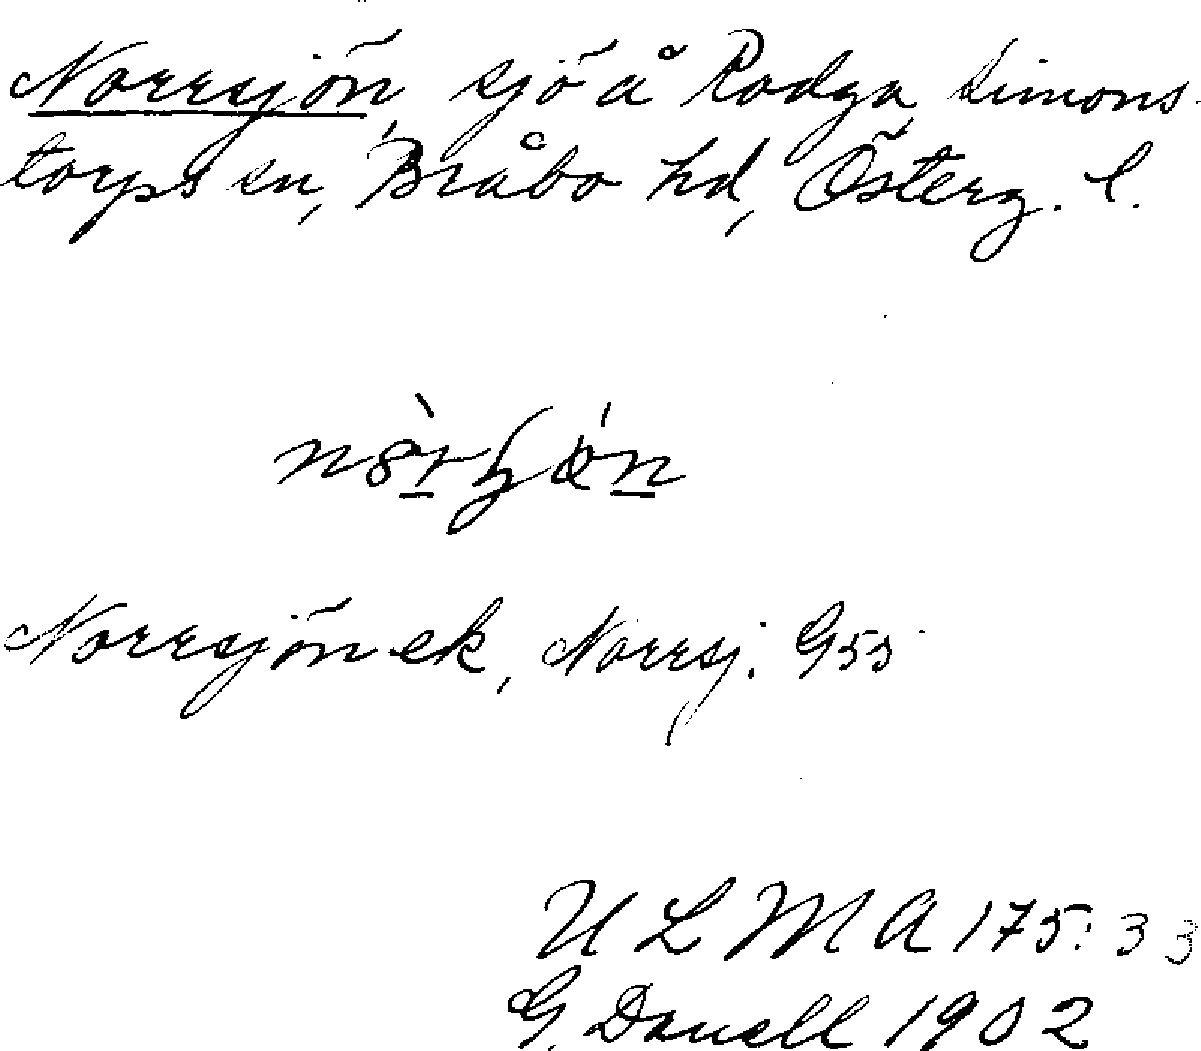 Norrsjön, sjö å Rodga, Simons-
torps sn, Bråbo hd, Österg. l.
Norrsjön ek, Norrsj. G55
ULMA 175:33
G. Danell 1902